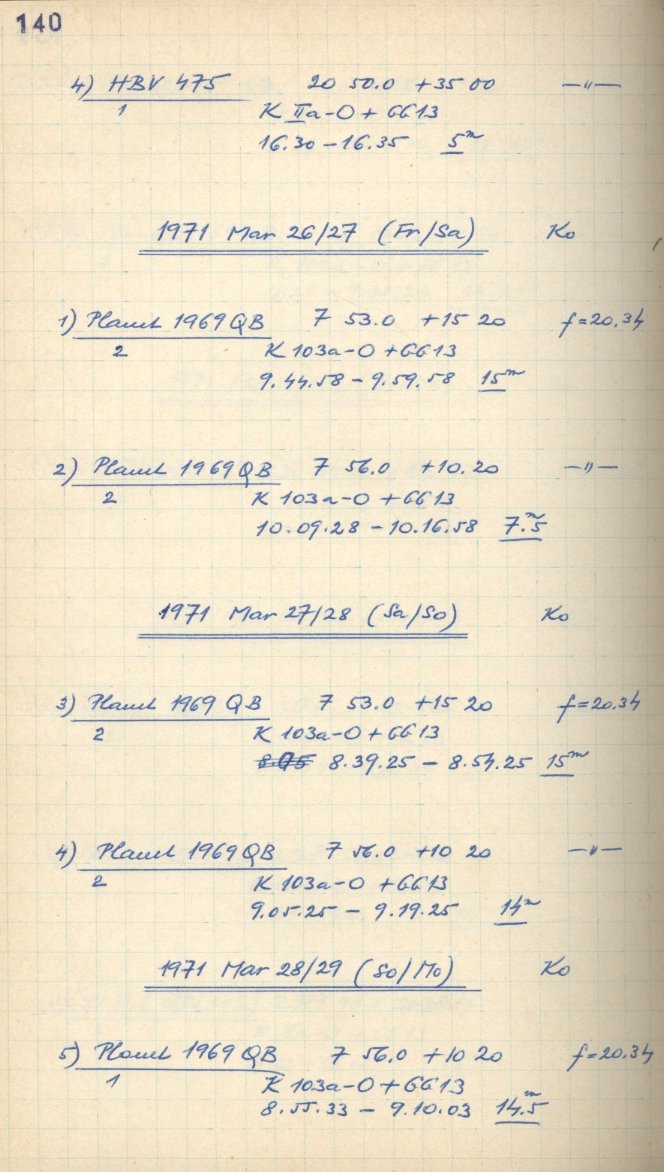 140
4) HBV 475 20 50.0 +35 00 —〃—
1 K IIa-O + GG13
16.30 – 16.35 5ᵐ
1971 Mar 26/27 (Fr/Sa) Ko
1) Planet 1969 QB 7 53.0 +15 20 f=20.34
2 K 103a-O + GG13
9.44.58 – 9.59.58 15ᵐ
2) Planet 1969 QB 7 56.0 +10.20 —〃—
2 K 103a-O + GG13
10.09.28 – 10.16.58 7.ᵐ5
1971 Mar 27/28 (Sa/So) Ko
3) Planet 1969 QB 7 53.0 +15 20 f=20.34
2 K 103a-O + GG13
8.39.25 – 8.54.25 15ᵐ
4) Planet 1969 QB 7 56.0 +10 20 —〃—
2 K 103a-O + GG13
9.05.25 – 9.19.25 14ᵐ
1971 Mar 28/29 (So/Mo) Ko
5) Planet 1969 QB 7 56.0 +10 20 f=20.34
1 K 103a-O + GG13
8.55.33 – 9.10.03 14.ᵐ5